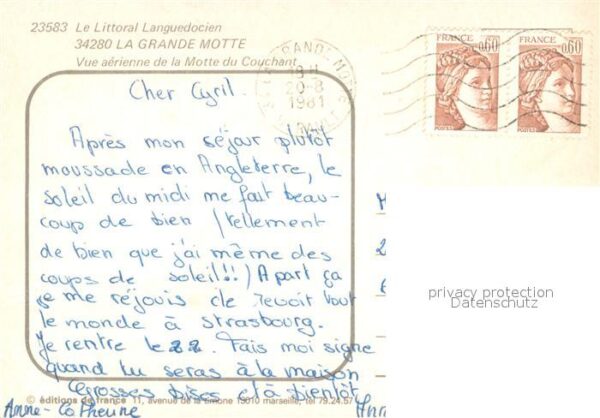 23583 Le Littoral Languedocien
34280 LA GRANDE MOTTE
Vue aérienne de la Motte du Couchant
GRANDE MOTTE
18 H
20-8
1981
FRANCE 0,60
POSTES
FRANCE 0,60
POSTES
Cher Cyril.
Après mon séjour plutôt
moussade en Angleterre, le
soleil du midi me fait beau-
coup de bien (tellement
de bien que j'ai même des
coups de soleil!!) A part ça
je me réjouis de revoir tout
le monde à Strasbourg.
Je rentre le 22. Fais moi signe
quand tu seras à la maison
Grosses bises et à bientôt
Anne-Catherine
© éditions de france 11, avenue de la timone 13010 marseille, tel 79.24.57
privacy protection
Datenschutz